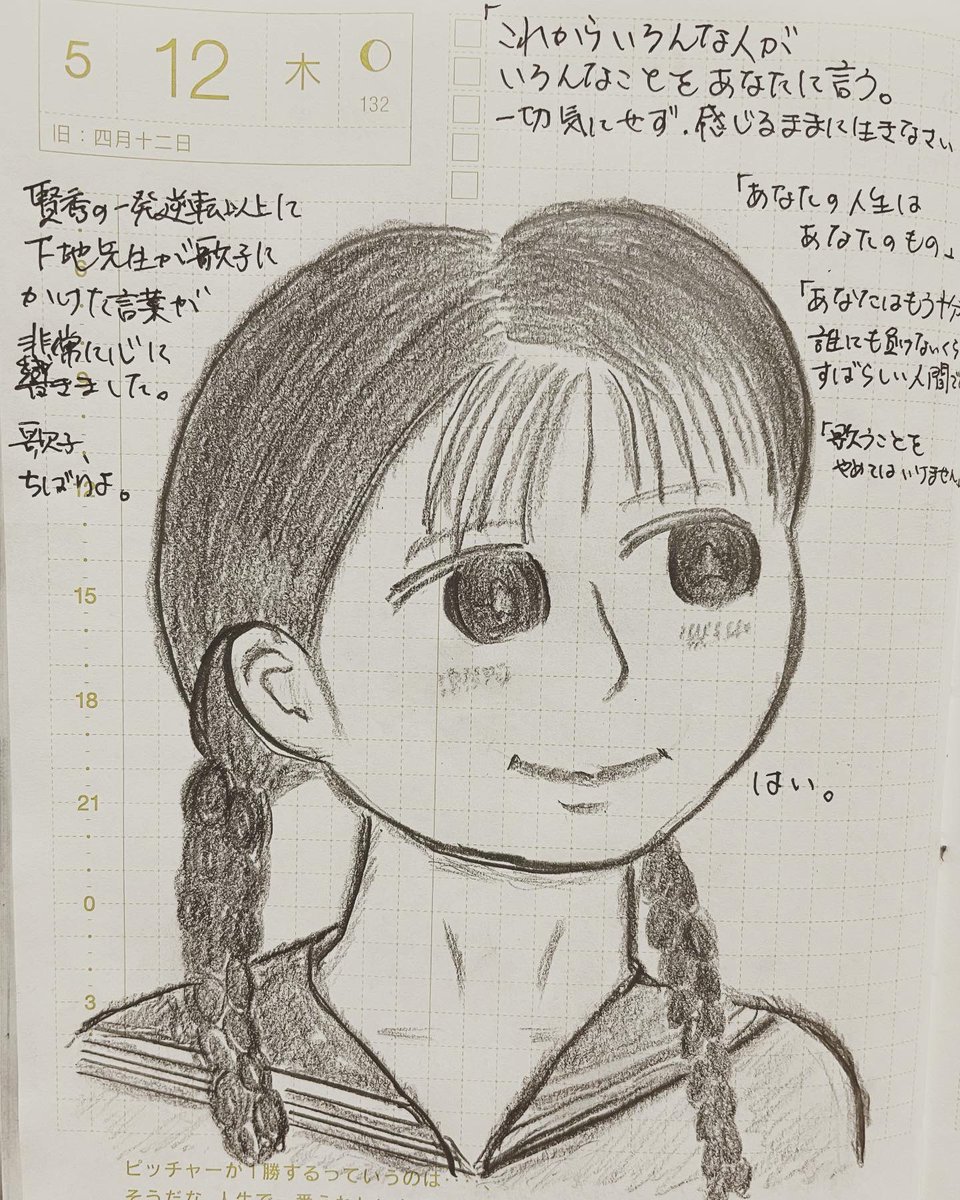 5 12 木
132
旧：四月十二日
「これからいろんな人が
いろんなことをあなたに言う。
一切気にせず、感じるままに生きなさい
賢秀の一発逆転以上に
下地先生が歌子に
かけた言葉が
非常に心に
響きました。
歌子、
ちばりよ。
「あなたの人生は
あなたのもの」
「あなたはもう十分
誰にも負けないくら
すばらしい人間で
「歌うことを
やめてはいけません。
はい。
6
9
12
15
18
21
0
3
ピッチャーが1勝するっていうのは…
そうだな、人生で